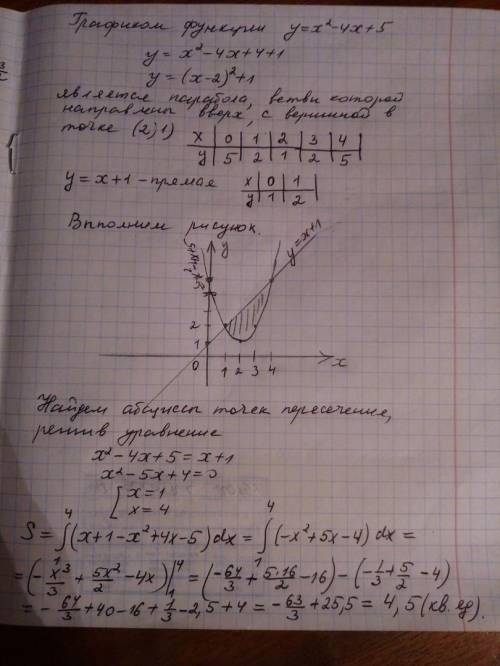 Графиком функции y=x²-4x+5
y = x²-4x+4+1
y = (x-2)²+1
является парабола, ветви которой
направлены вверх, с вершиной в
точке (2;1)
x | 0 | 1 | 2 | 3 | 4
y | 5 | 2 | 1 | 2 | 5
y = x+1 - прямая
x | 0 | 1
y | 1 | 2
Вполним рисунок.
y
y=x+1
2
1
0
1 2 3 4
x
Найдем абциссы точек пересечение,
решив уравнение
x²-4x+5=x+1
x²-5x+4=0
[ x=1
x=4
S = ∫₁⁴(x+1-x²+4x-5)dx = ∫₁⁴(-x²+5x-4)dx =
= (-x³/3 + 5x²/2 - 4x)|₁⁴ = (-64/3 + 5·16/2 - 16) - (-1/3 + 5/2 - 4)
= - 64/3 + 40 - 16 + 1/3 - 2,5 + 4 = -63/3 + 25,5 = 4,5 (кв.ед).